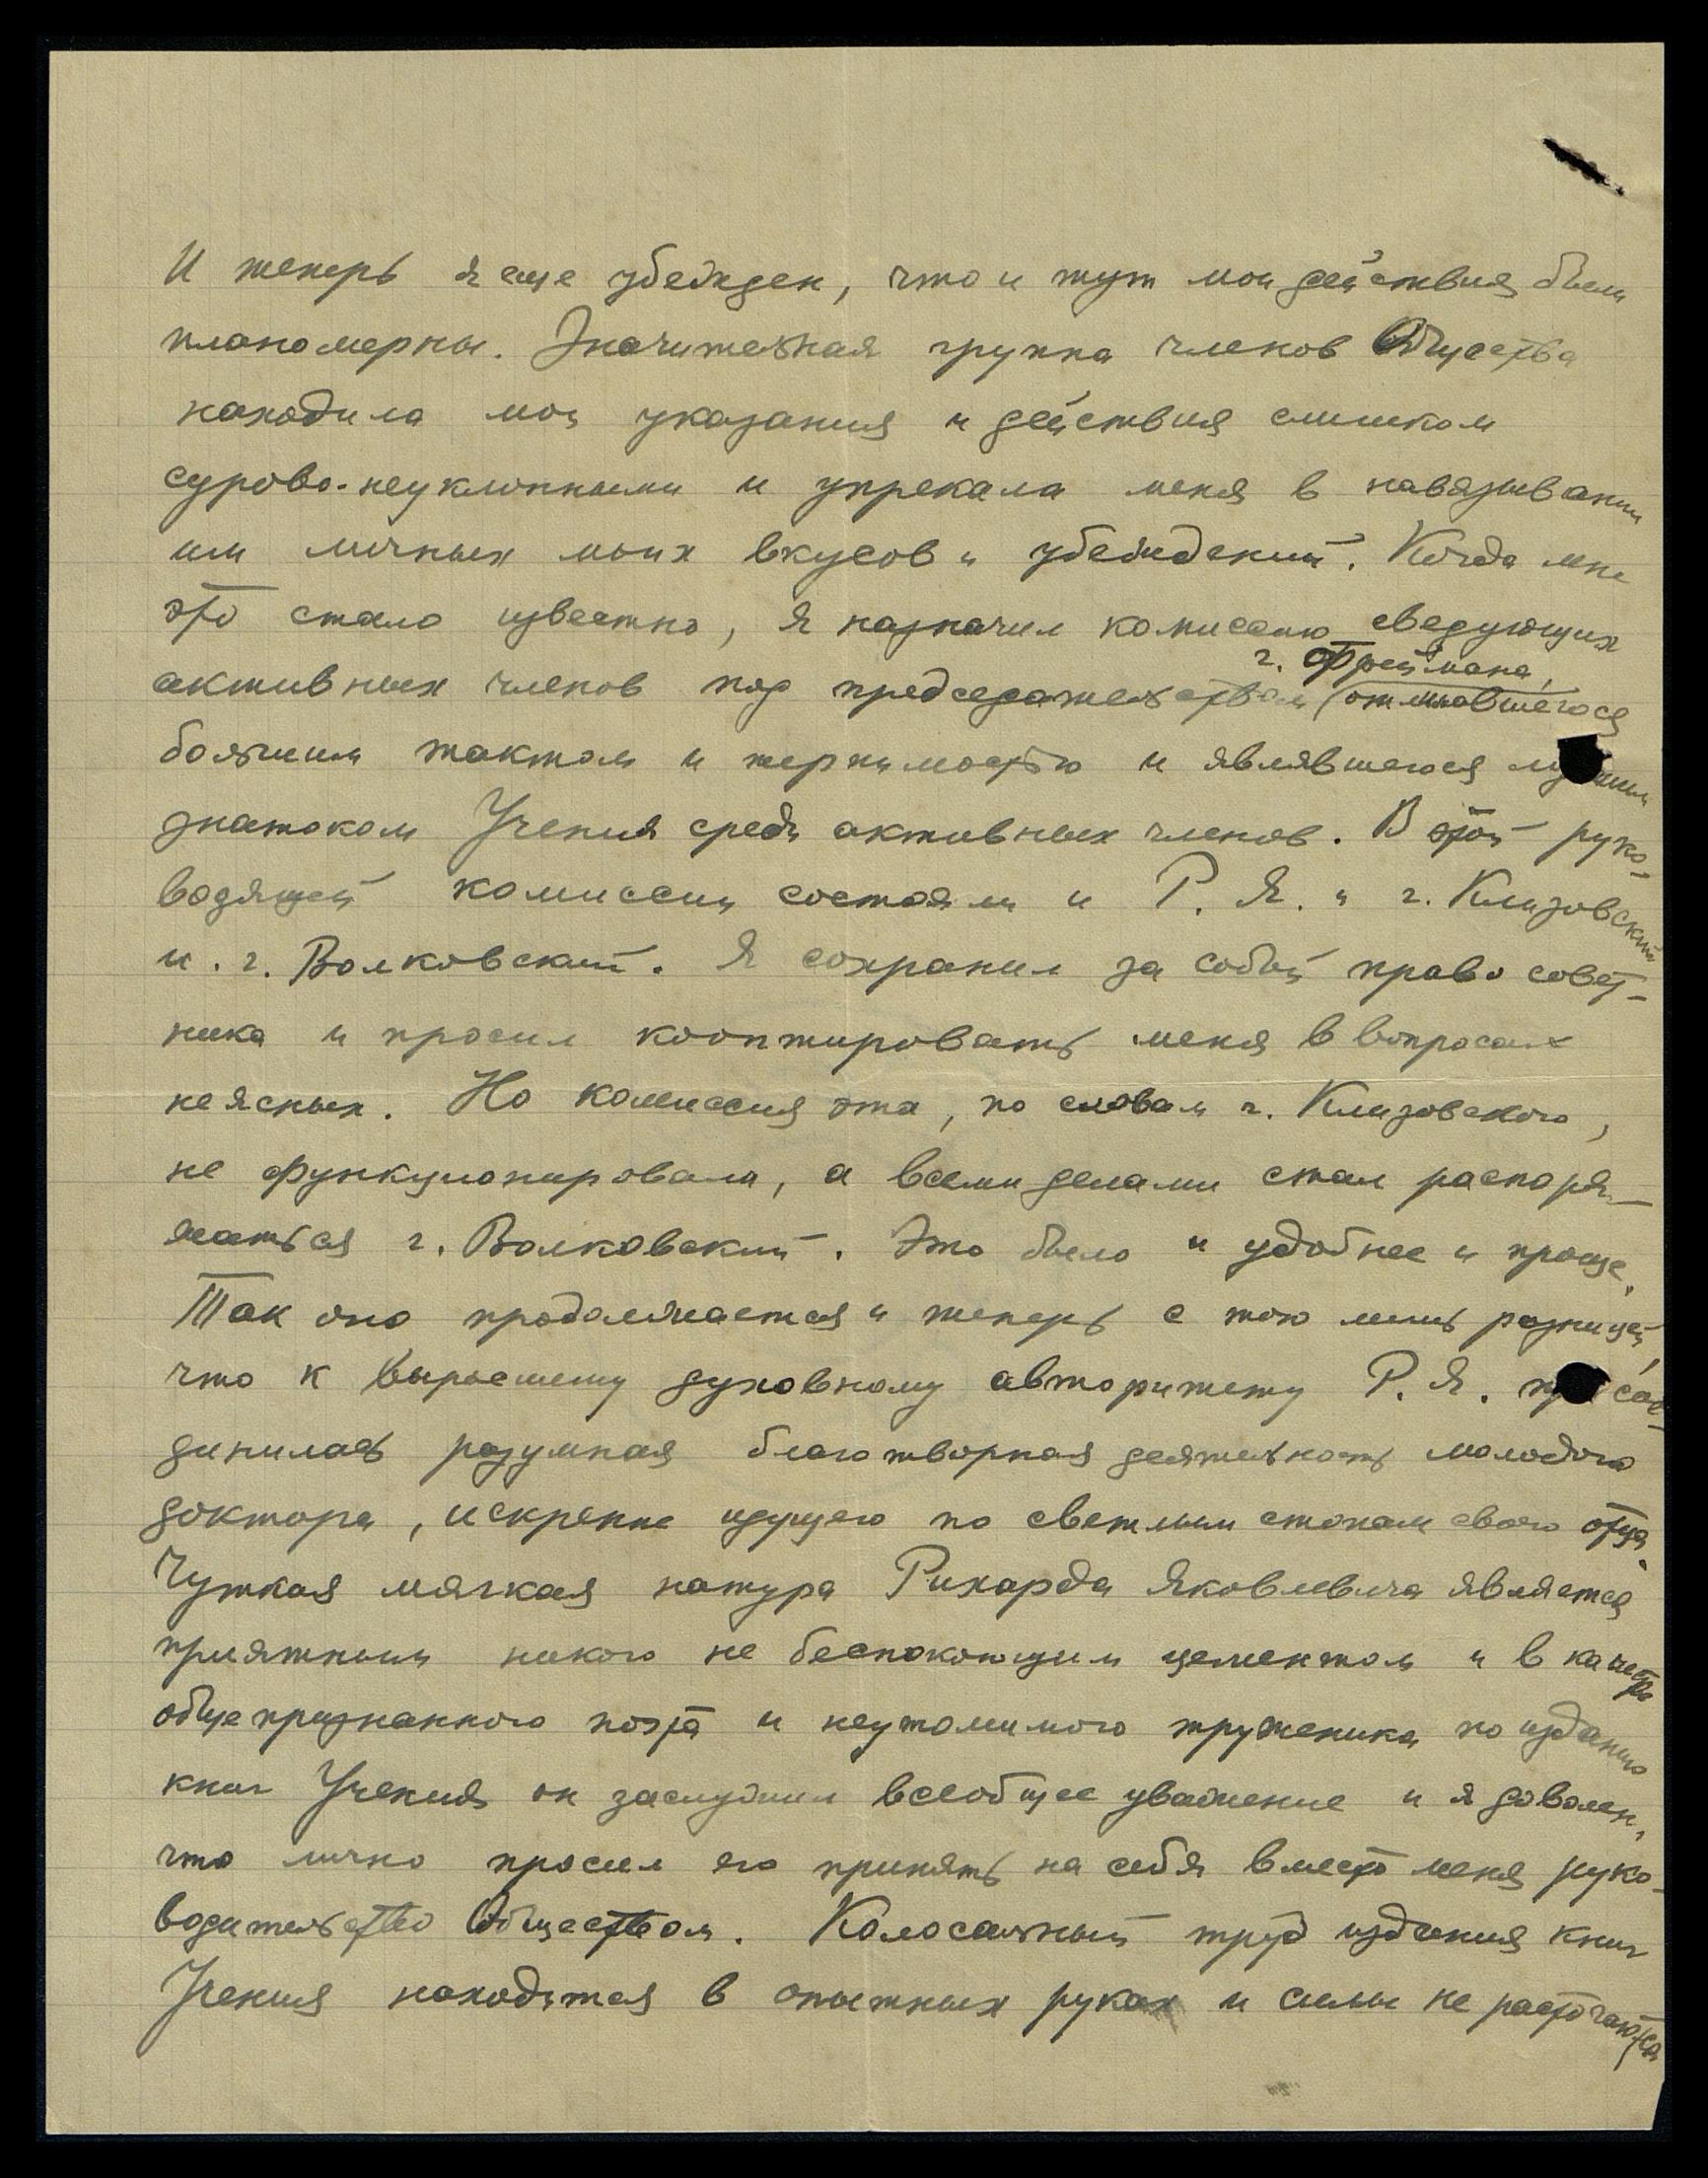 И теперь я еще убежден, что и тут мои действия были
планомерны. Значительная группа членов Общества
находила мои указания и действия слишком
сурово-неуклонными и упрекала меня в навязывании
им личных моих вкусов и убеждений. Когда мне
это стало известно, я назначил комиссию сведующих
активных членов под председательством (г. Фреймана, отличавшегося
большим тактом и терпимостью и являвшегося лучшим
знатоком Учения среди активных членов. В этой руко-
водящей комиссии состояли и Р. Я. и г. Клизовский
и г. Волковский. Я сохранил за собой право совет-
ника и просил кооптировать меня в вопросах
неясных. Но комиссия эта, по словам г. Клизовского,
не функционировала, а всеми делами стал распоря-
жаться г. Волковский. Это было и удобнее и проще.
Так оно продолжается и теперь с тою лишь разницей,
что к выросшему духовному авторитету Р. Я. присое-
динилась разумная благотворная деятельность молодого
доктора, искренне идущего по светлым стопам своего отца.
Чуткая мягкая натура Рихарда Яковлевича является
приятным никого не беспокоющим цементом и в качестве
общепризнанного поэта и неутомимого труженика по изданию
книг Учения он заслужил всеобщее уважение и я доволен,
что лично просил его принять на себя вместо меня руко-
водительство Обществом. Колосальный труд издания книг
Учения находится в опытных руках и силы не расточаются